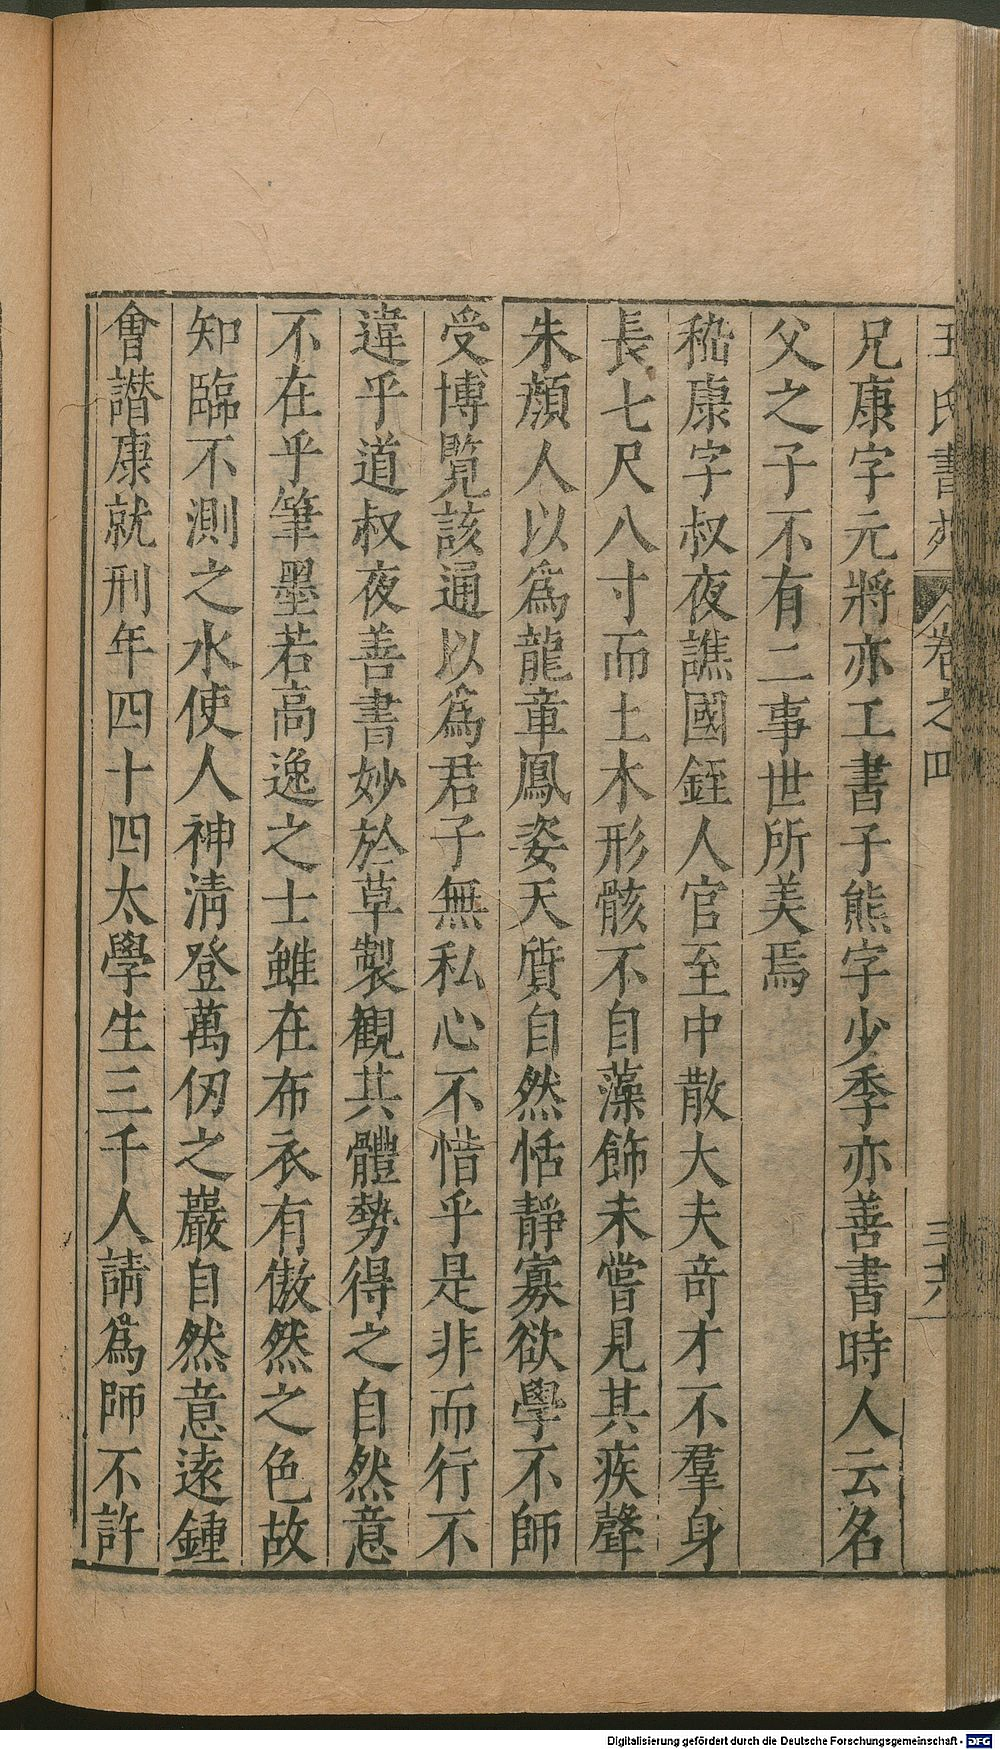 王氏書苑 卷之四 三十六
兄康字元將亦工書子熊字少季亦善書時人云名
父之子不有二事世所美焉
嵇康字叔夜譙國銍人官至中散大夫竒才不羣身
長七尺八寸而土木形骸不自藻飾未嘗見其疾聲
朱顔人以爲龍章鳳姿天質自然恬靜寡欲學不師
受博覽該通以爲君子無私心不惜乎是非而行不
違乎道叔夜善書妙於草製観其體勢得之自然意
不在乎筆墨若高逸之士雖在布衣有傲然之色故
知臨不測之水使人神清登萬仭之巖自然意遠鍾
會譖康就刑年四十四太學生三千人請爲師不許
Digitalisierung gefördert durch die Deutsche Forschungsgemeinschaft - DFG